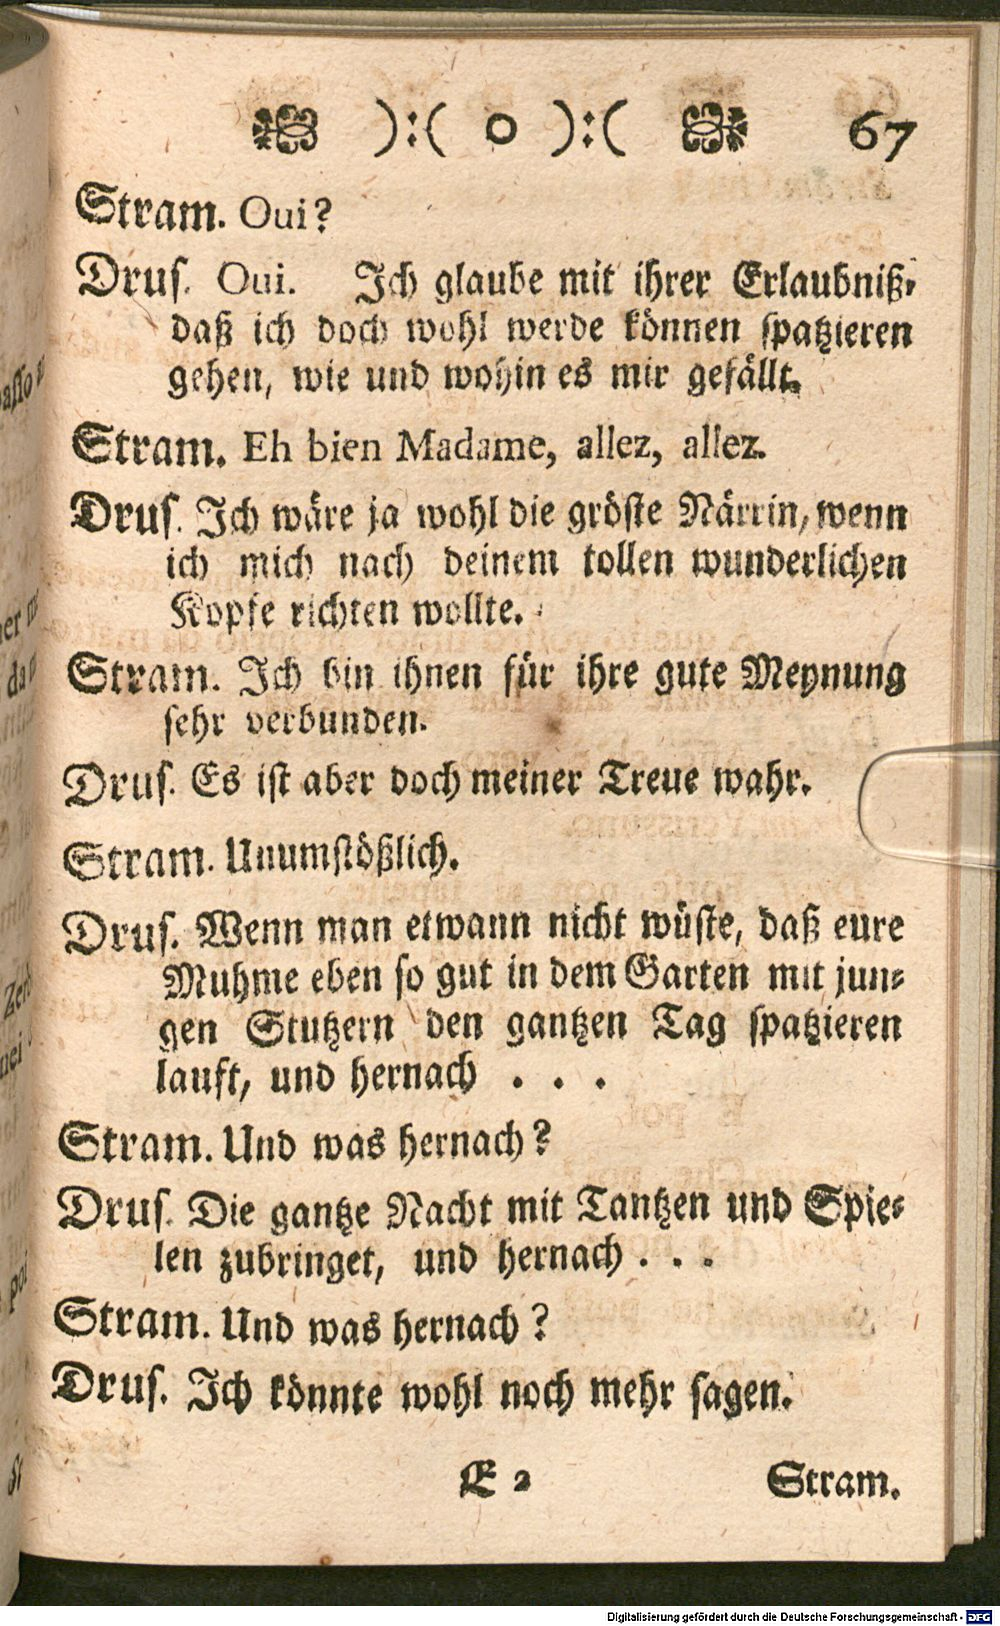 ):( o ):( 67
Stram. Oui?
Drus. Oui. Ich glaube mit ihrer Erlaubniß,
daß ich doch wohl werde können spatzieren
gehen, wie und wohin es mir gefällt.
Stram. Eh bien Madame, allez, allez.
Drus. Ich wäre ja wohl die gröste Närrin, wenn
ich mich nach deinem tollen wunderlichen
Kopfe richten wollte.
Stram. Ich bin ihnen für ihre gute Meynung
sehr verbunden.
Drus. Es ist aber doch meiner Treue wahr.
Stram. Unumstößlich.
Drus. Wenn man etwann nicht wüste, daß eure
Muhme eben so gut in dem Garten mit jun-
gen Stutzern den gantzen Tag spatzieren
lauft, und hernach . . .
Stram. Und was hernach?
Drus. Die gantze Nacht mit Tantzen und Spie-
len zubringet, und hernach . . .
Stram. Und was hernach?
Drus. Ich könnte wohl noch mehr sagen.
E 2 Stram.
Digitalisierung gefördert durch die Deutsche Forschungsgemeinschaft - DFG